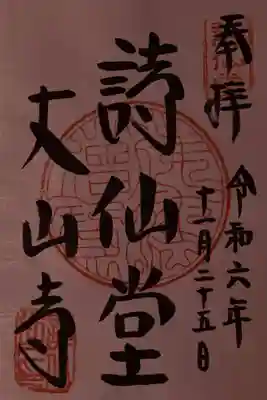 奉拝
令和六年
十一月二十五日
詩仙堂
丈山寺